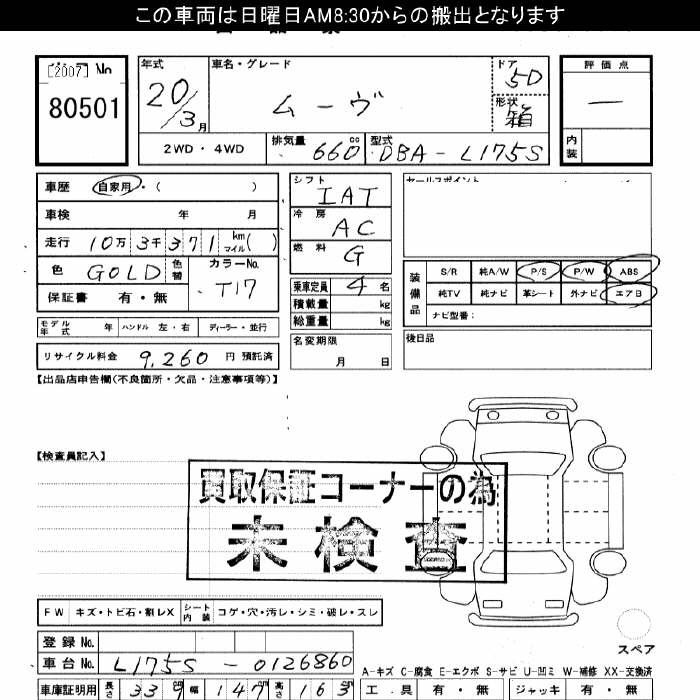 この車両は日曜日AM8:30からの搬出となります
[2007] No
80501
年式 20/3月
車名・グレード ムーヴ
ドア 5D
形状 箱
2WD・4WD
排気量 660cc
型式 DBA-L175S
評価点 ―
内装
車歴 自家用・( )
車検 年 月
走行 10万3千371km マイル( )
色 GOLD 色替 カラーNo. T17
保証書 有・無
モデル年式 年 ハンドル 左・右 ディーラー・並行
リサイクル料金 9,260 円 預託済
シフト IAT
冷房 AC
燃料 G
乗車定員 4名
積載量 kg
総重量 kg
名変期限 月 日
セールスポイント
装備品
S/R 純A/W P/S P/W ABS
純TV 純ナビ 革シート 外ナビ エアB
ナビ型番:
後日品
【出品店申告欄(不良箇所・欠品・注意事項等)】
【検査員記入】
買取保証コーナーの為
未検査
FW キズ・トビ石・割レX シート内装 コゲ・穴・汚レ・シミ・破レ・スレ
スペア
登録No.
車台No. L175S-0126860
A-キズ C-腐食 E-エクボ S-サビ U-凹ミ W-補修 XX-交換済
車庫証明用 長さ 339 幅 147 高さ 163
工具 有・無 ジャッキ 有・無